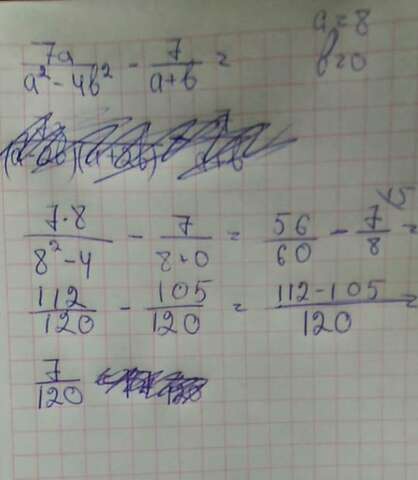 7a/(a² - 4b²) - 7/(a+b) = a = 8
b = 0
(7·8)/(8² - 4) - 7/(8+0) = 56/60 - 7/8 \15 =
112/120 - 105/120 = (112-105)/120 =
7/120